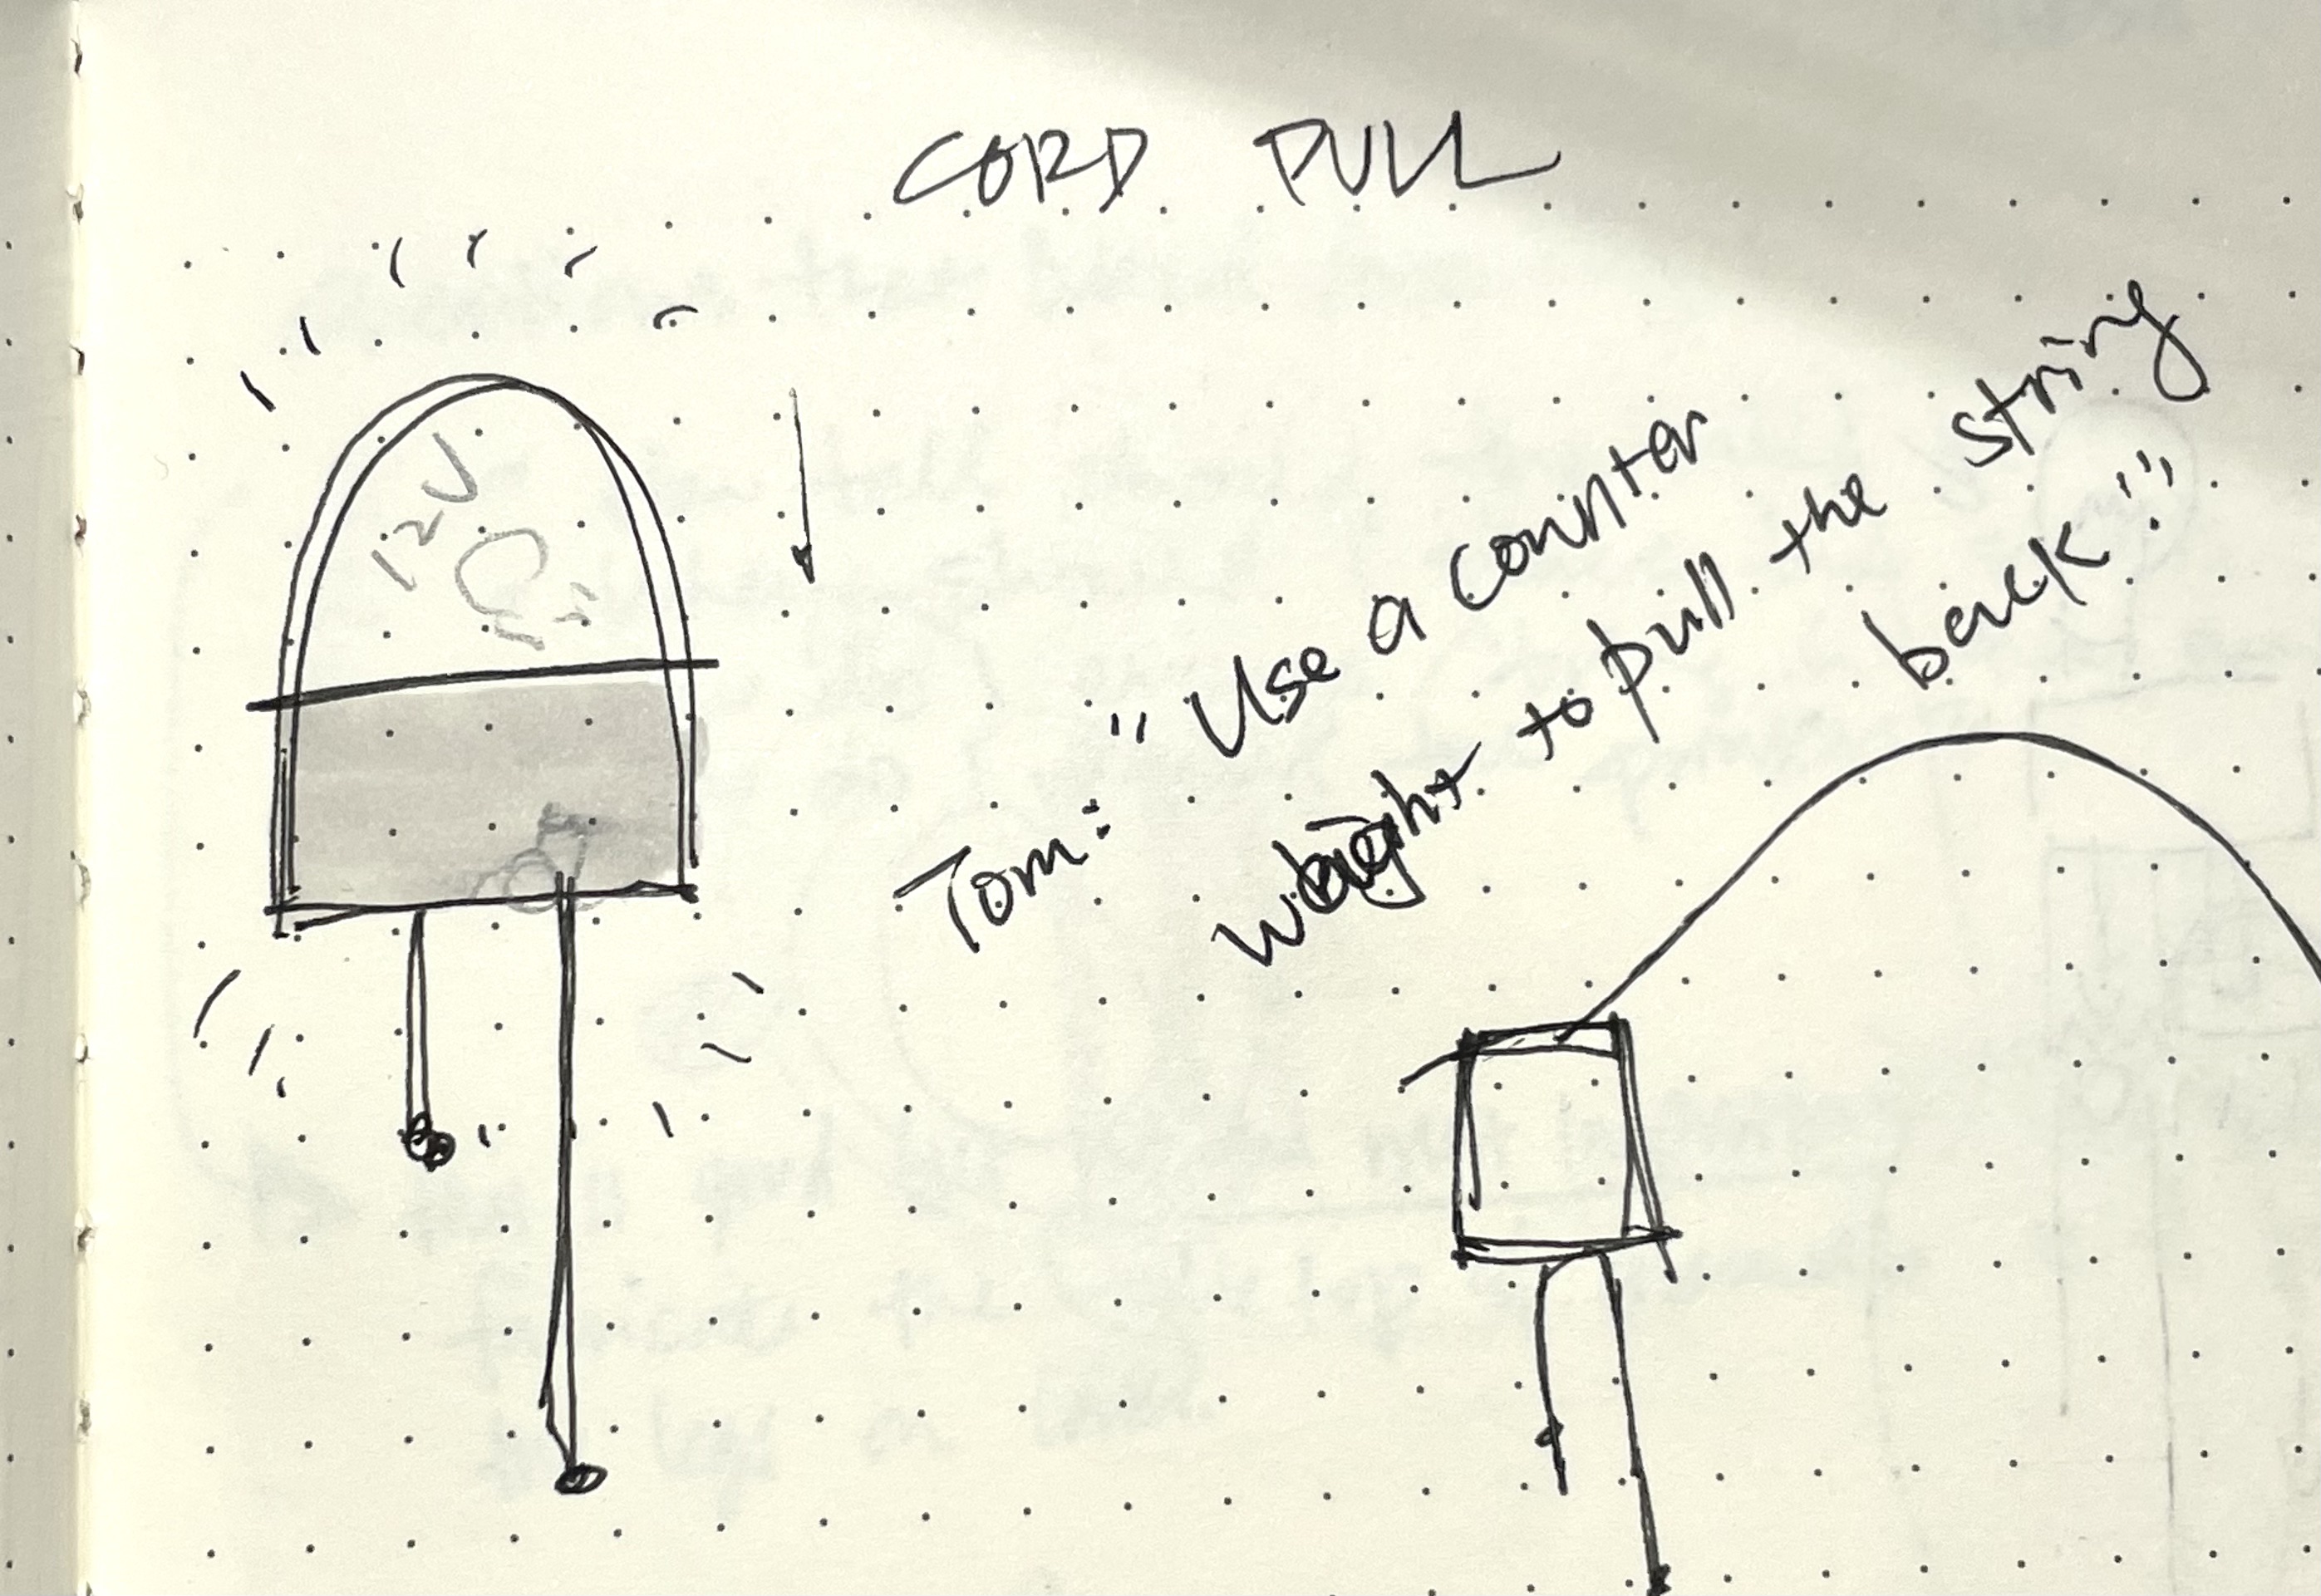 CORD PULL
12V
Tom: "Use a counter
weight to pull the string
back!"